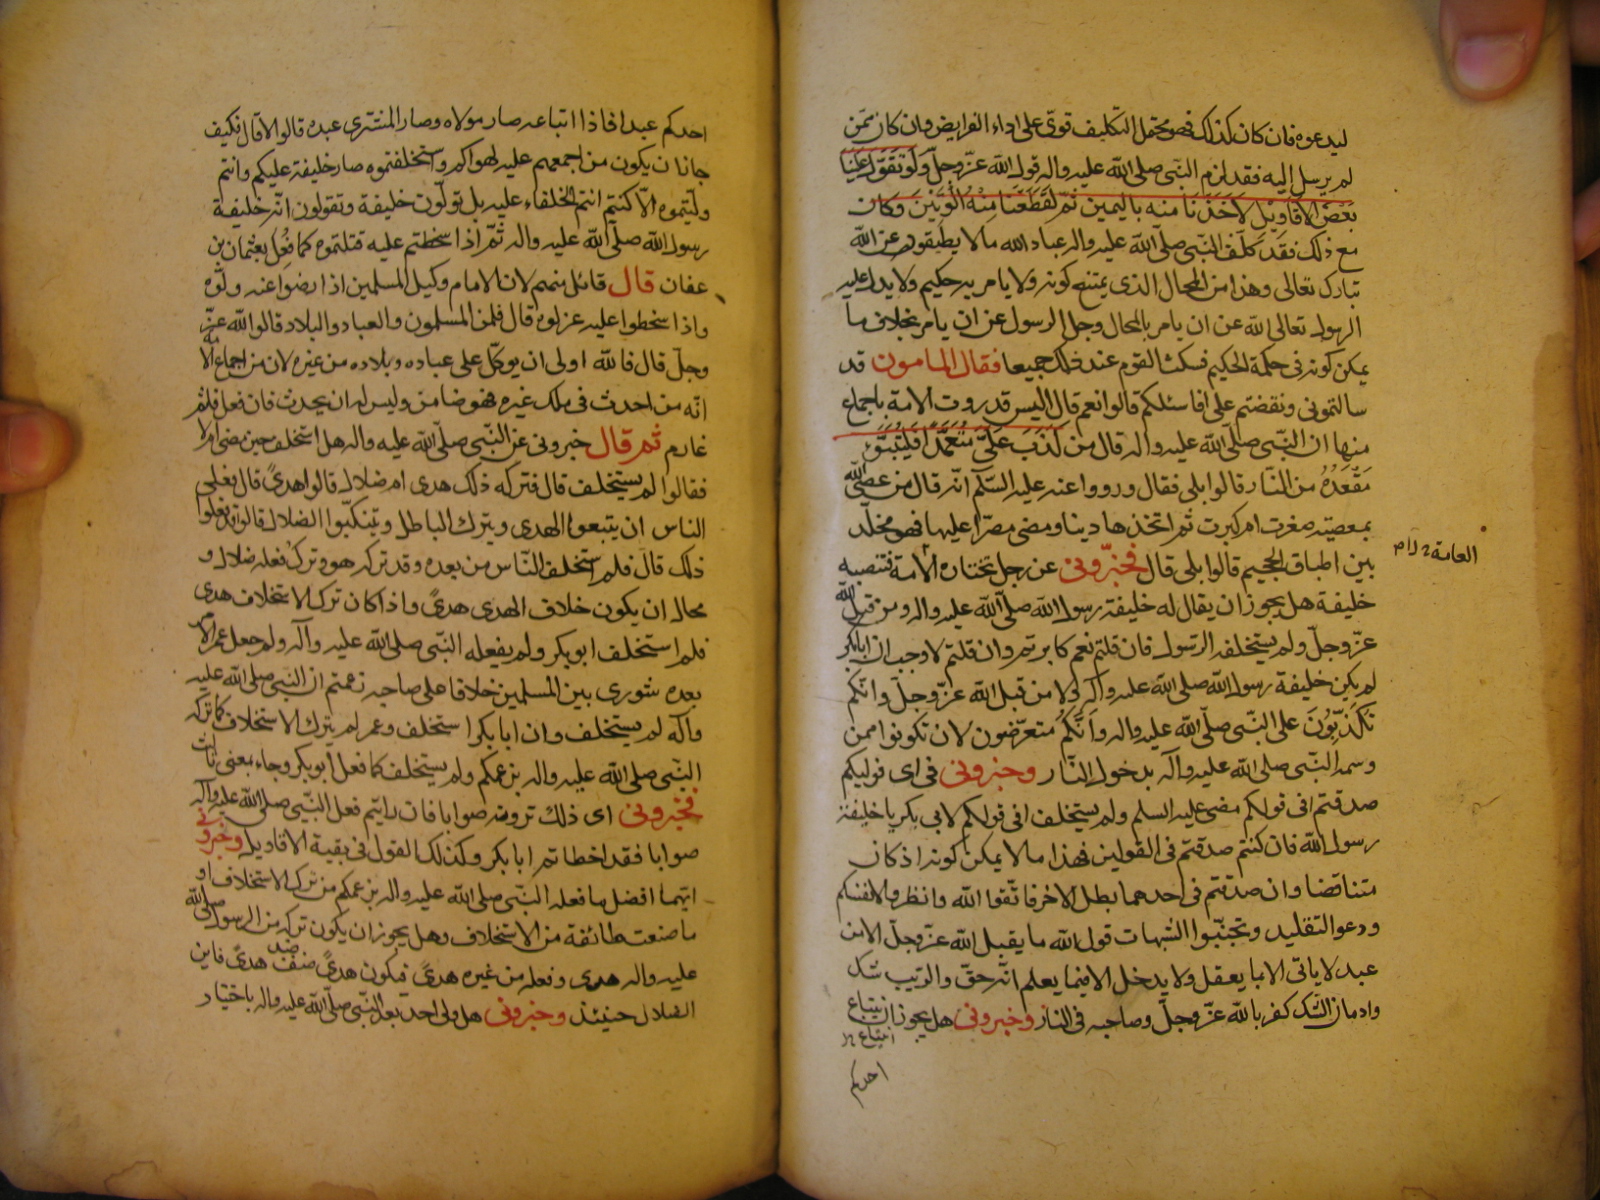 ليدعوه فان كان كذلك فهو محتمل التكليف قوى على اداء الفرايض وان كان ممن
لم يرسل اليه فقد لزم النبى صلى الله عليه واله قول الله عز وجل ولو تقول علينا
بعض الاقاويل لاخذنا منه باليمين ثم لقطعنا منه الوتين وكان
مع ذلك فقد كلف النبى صلى الله عليه واله عباد الله ما لا يطيقون عن الله
تبارك وتعالى وهذا من المحال الذى يمتنع كونه ولا يامر به حكيم ولا يدل عليه
الرسول تعالى الله عن ان يامر بالمحال وجل الرسول عن ان يامر بخلاف ما
يمكن كونه فى حكمة الحكيم فسكت القوم عند ذلك جميعا فقال المامون قد
سالتمونى ونقضتم على افاسئلكم قالوا نعم قال اليس قد روت الامة باجماع
منها ان النبى صلى الله عليه واله قال من كذب على متعمدا فليتبوء
مقعده من النار قالوا بلى فقال ورووا عنه عليه السلام انه قال من عصى الله
بمعصية صغرت ام كبرت ثم اتخذها دينا ومضى مصرا عليها فهو مخلد
بين اطباق الجحيم قالوا بلى قال فخبرونى عن رجل تختاره الامة فتنصبه
خليفة هل يجوز ان يقال له خليفة رسول الله صلى الله عليه واله ومن قبل الله
عز وجل ولم يستخلفه الرسول فان قلتم نعم كابرتم وان قلتم لا وجب ان ابابكر
لم يكن خليفة رسول الله صلى الله عليه واله ولا من قبل الله عز وجل وانكم
تكذبون على النبى صلى الله عليه واله وانكم متعرضون لان تكونوا ممن
وسمه النبى صلى الله عليه واله بدخول النار وخبرونى فى اى قوليكم
صدقتم افى قولكم مضى عليه السلم ولم يستخلف افى قولكم لابى بكر يا خليفة
رسول الله فان كنتم صدقتم فى القولين فهذا ما لا يمكن كونه اذ كان
متناقضا وان صدقتم فى احدهما بطل الاخر فاتقوا الله وانظروا لانفسكم
ودعوا التقليد وتجنبوا الشبهات فوالله ما يقبل الله عز وجل الا من
عبد لا ياتى الا بما يعقل ولا يدخل الا فيما يعلم انه حق والريب شك
وادمان الشك كفر بالله عز وجل وصاحبه فى النار وخبرونى هل يجوز ان يبتاع
احدكم
العامة
احدكم عبدا فاذا ابتاعه صار مولاه وصار المشترى عبده قالوا لا قال فكيف
جاز ان يكون من اجمعتم عليه لهواكم واستخلفتموه صار خليفة عليكم وانتم
وليتموه الا كنتم انتم الخلفاء عليه بل تولون خليفة وتقولون انه خليفة
رسول الله صلى الله عليه واله ثم اذا سخطتم عليه قتلتموه كما فعل بعثمان بن
عفان قال قائل منهم لان الامام وكيل المسلمين اذا رضوا عنه ولوه
واذا سخطوا عليه عزلوه قال فلمن المسلمون والعباد والبلاد قالوا لله عز
وجل قال فالله اولى ان يوكل على عباده وبلاده من غيره لان من اجماع الامة
انه من احدث فى ملك غيره فهو ضامن وليس له ان يحدث فان فعل فاثم
غارم ثم قال خبرونى عن النبى صلى الله عليه واله هل استخلف حين مضى ام لا
فقالوا لم يستخلف قال فتركه ذلك هدى ام ضلال قالوا هدى قال فعلى
الناس ان يتبعوا الهدى ويترك الباطل ويتنكبوا الضلال قالوا قد فعلوا
ذلك قال فلم استخلف الناس من بعده وقد تركه هو وترك فعله ضلال و
محال ان يكون خلاف الهدى هدى واذا كان ترك الاستخلاف هدى
فلم استخلف ابو بكر ولم يفعله النبى صلى الله عليه واله ولم جعل عمر الامر
بعده شورى بين المسلمين خلافا على صاحبه زعمتم ان النبى صلى الله عليه
واله لم يستخلف وان ابا بكر استخلف وعمر لم يترك الاستخلاف كما تركه
النبى صلى الله عليه واله بزعمكم ولم يستخلف كما فعل ابو بكر وجاء بمعنى ثالث
فخبرونى اى ذلك ترونه صوابا فان رايتم فعل النبى صلى الله عليه واله
صوابا فقد اخطاتم ابا بكر وكذلك القول فى بقية الاقاويل وخبرونى
ايهما افضل ما فعله النبى صلى الله عليه واله بزعمكم من ترك الاستخلاف او
ما صنعت طائفة من الاستخلاف وهل يجوز ان يكون تركه من الرسول صلى الله
عليه واله هدى وفعله من غيره هدى فيكون هدى ضد هدى فاين
الضلال حينئذ وخبرونى هل ولى احد بعد النبى صلى الله عليه واله باختيار